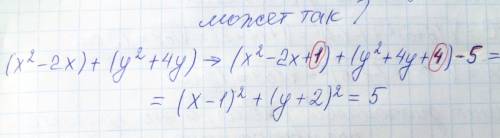 может так ?
(x²-2x)+(y²+4y) → (x²-2x+1)+(y²+4y+4)-5=
=(x-1)²+(y+2)²=5